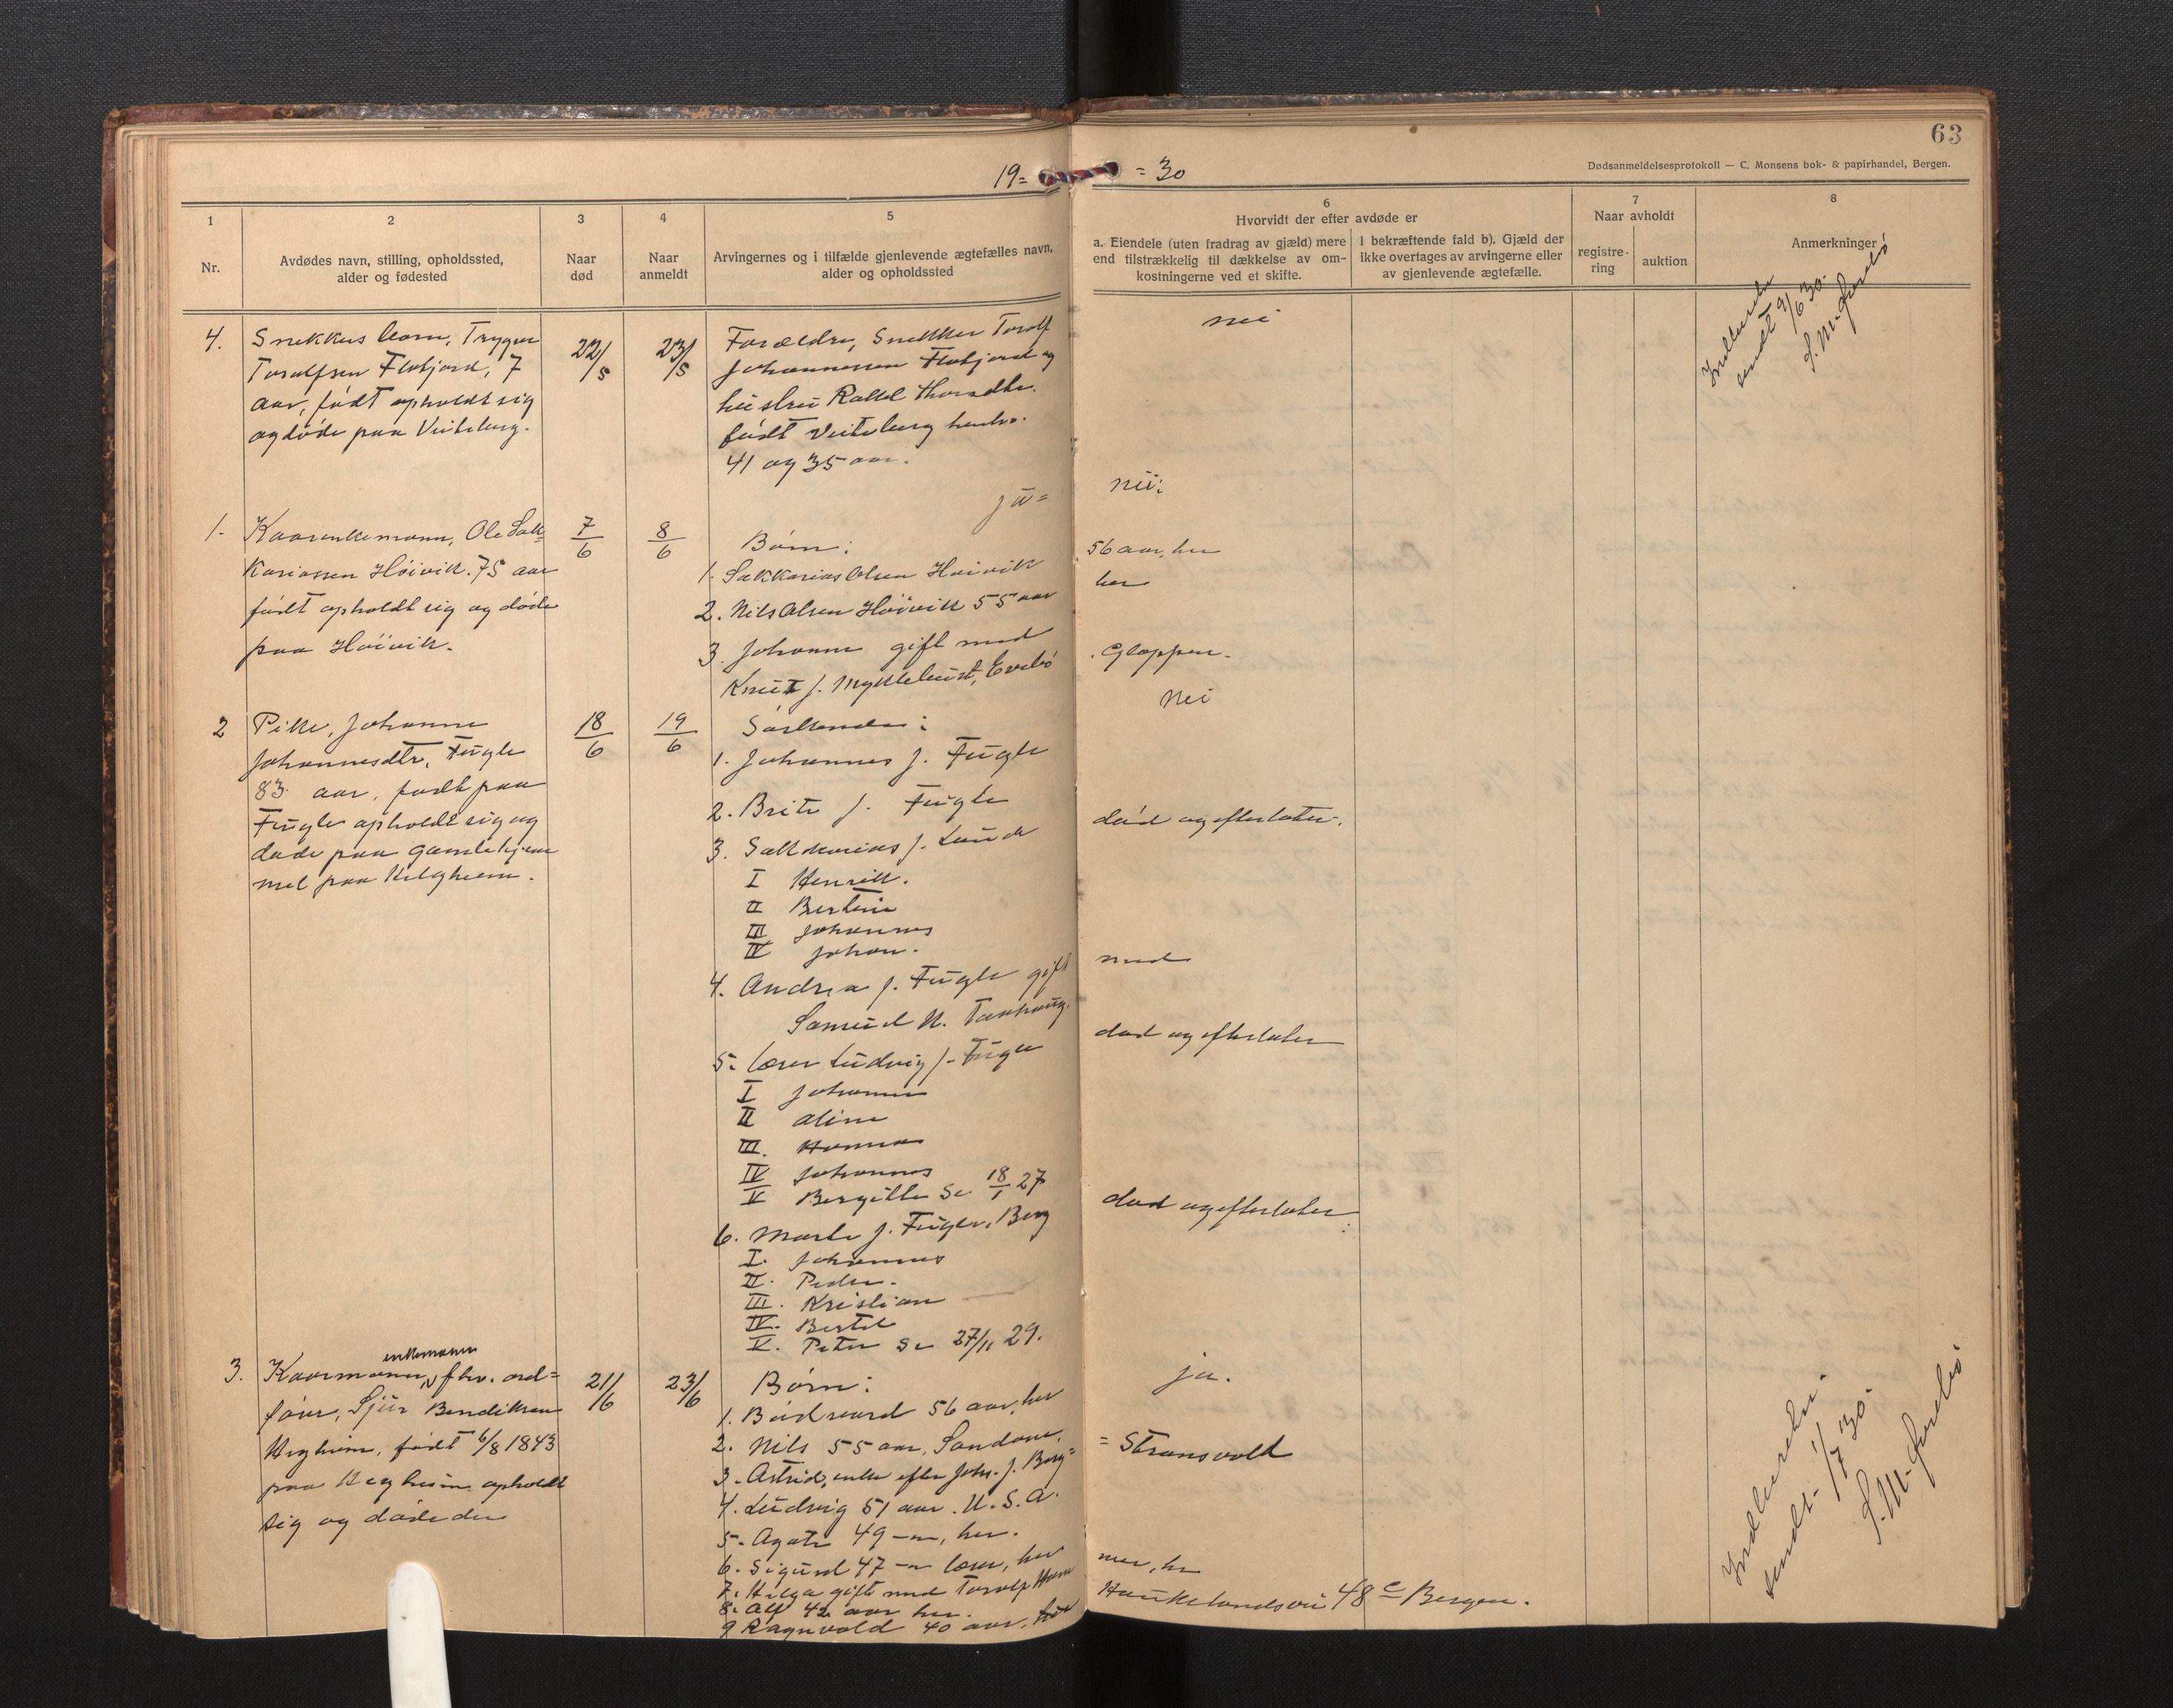 63
Dødsanmeldelsesprotokoll — C. Monsens bok- & papirhandel, Bergen.
19= = 30
1
Nr.
2
Avdødes navn, stilling, opholdssted,
alder og fødested
3
Naar
død
4
Naar
anmeldt
5
Arvingernes og i tilfælde gjenlevende ægtefælles navn,
alder og opholdssted
6
Hvorvidt der efter avdøde er
a. Eiendele (uten fradrag av gjæld) mere
end tilstrækkelig til dækkelse av om-
kostningerne ved et skifte.
I bekræftende fald b). Gjæld der
ikke overtages av arvingerne eller
av gjenlevende ægtefælle.
7
Naar avholdt
registre-
ring
auktion
8
Anmerkninger
4.
Snekkus barn, Trygve
Toralfsen Flobjord, 7
aar, født opholdt sig
og døde paa Veiteberg.
22/5
23/5
Forældre, Snekker Toralf
Johannessen Flobjord og
hustru Rakel
født Veiteberg henhv.
41 og 35 aar.
nei
sendt 9/6 30.
1.
Kaarenkemann, Ole Sak=
kariassen Høivik. 75 aar
født opholdt sig og døde
paa Høivik.
7/6
8/6
nei:
Børn:
1. Sakkarias Olsen Høivik 56 aar, her
2. Nils Olsen Høivik 55 aar her
3. Johanne gift med
Knut J. Myklebust, Evebø Gloppen.
2
Pike, Johanne
Johannesdtr, Fugle
83 aar, født paa
Fugle opholdt sig og
døde paa Gamlehjem
met paa Helgheim.
18/6
19/6
nei
Søskende:
1. Johannes J. Fugle
2. Brite J. Fugle
3. Sakkarias J. Lunde død og efterlater.
I Henrik.
II Bertine
III Johannes
IV Johan.
4. Andrea J. Fugle gift med
Samuel N.
5. Lærer Ludvig J. Fugle død og efterlater
I Johannes
II Aline
III. Hanna
IV Johannes
V Bergitte Se 18/1 27
6. Marte J. Fugle, Berg død og efterlater
I. Johannes
II. Peder.
III. Kristian
IV. Bertel
V. Peter Se 27/11 29.
3.
enkemann
Kaarmann, fhv. ord=
fører, Sjur Bendiksen
Hegheim, født 6/8 1843
paa Hegheim opholdt
sig og døde der
21/6
23/6
ja.
Børn:
1. Bødvard 56 aar, her
2. Nils 55 aar, Sandane.
3. Astrid, enke efter Johs. J. Berg= = Stransvold
4. Ludvig 51 aar. U.S.A.
5. Agate 49 —"—, her.
6. Sigurd 47 —"— lærer, her
7. Helga gift med Toralf
8. Alf 42 aar her.
9 Ragnvald 40 aar,
Haukelandsvei 48 c Bergen.
sendt 1/7 30.